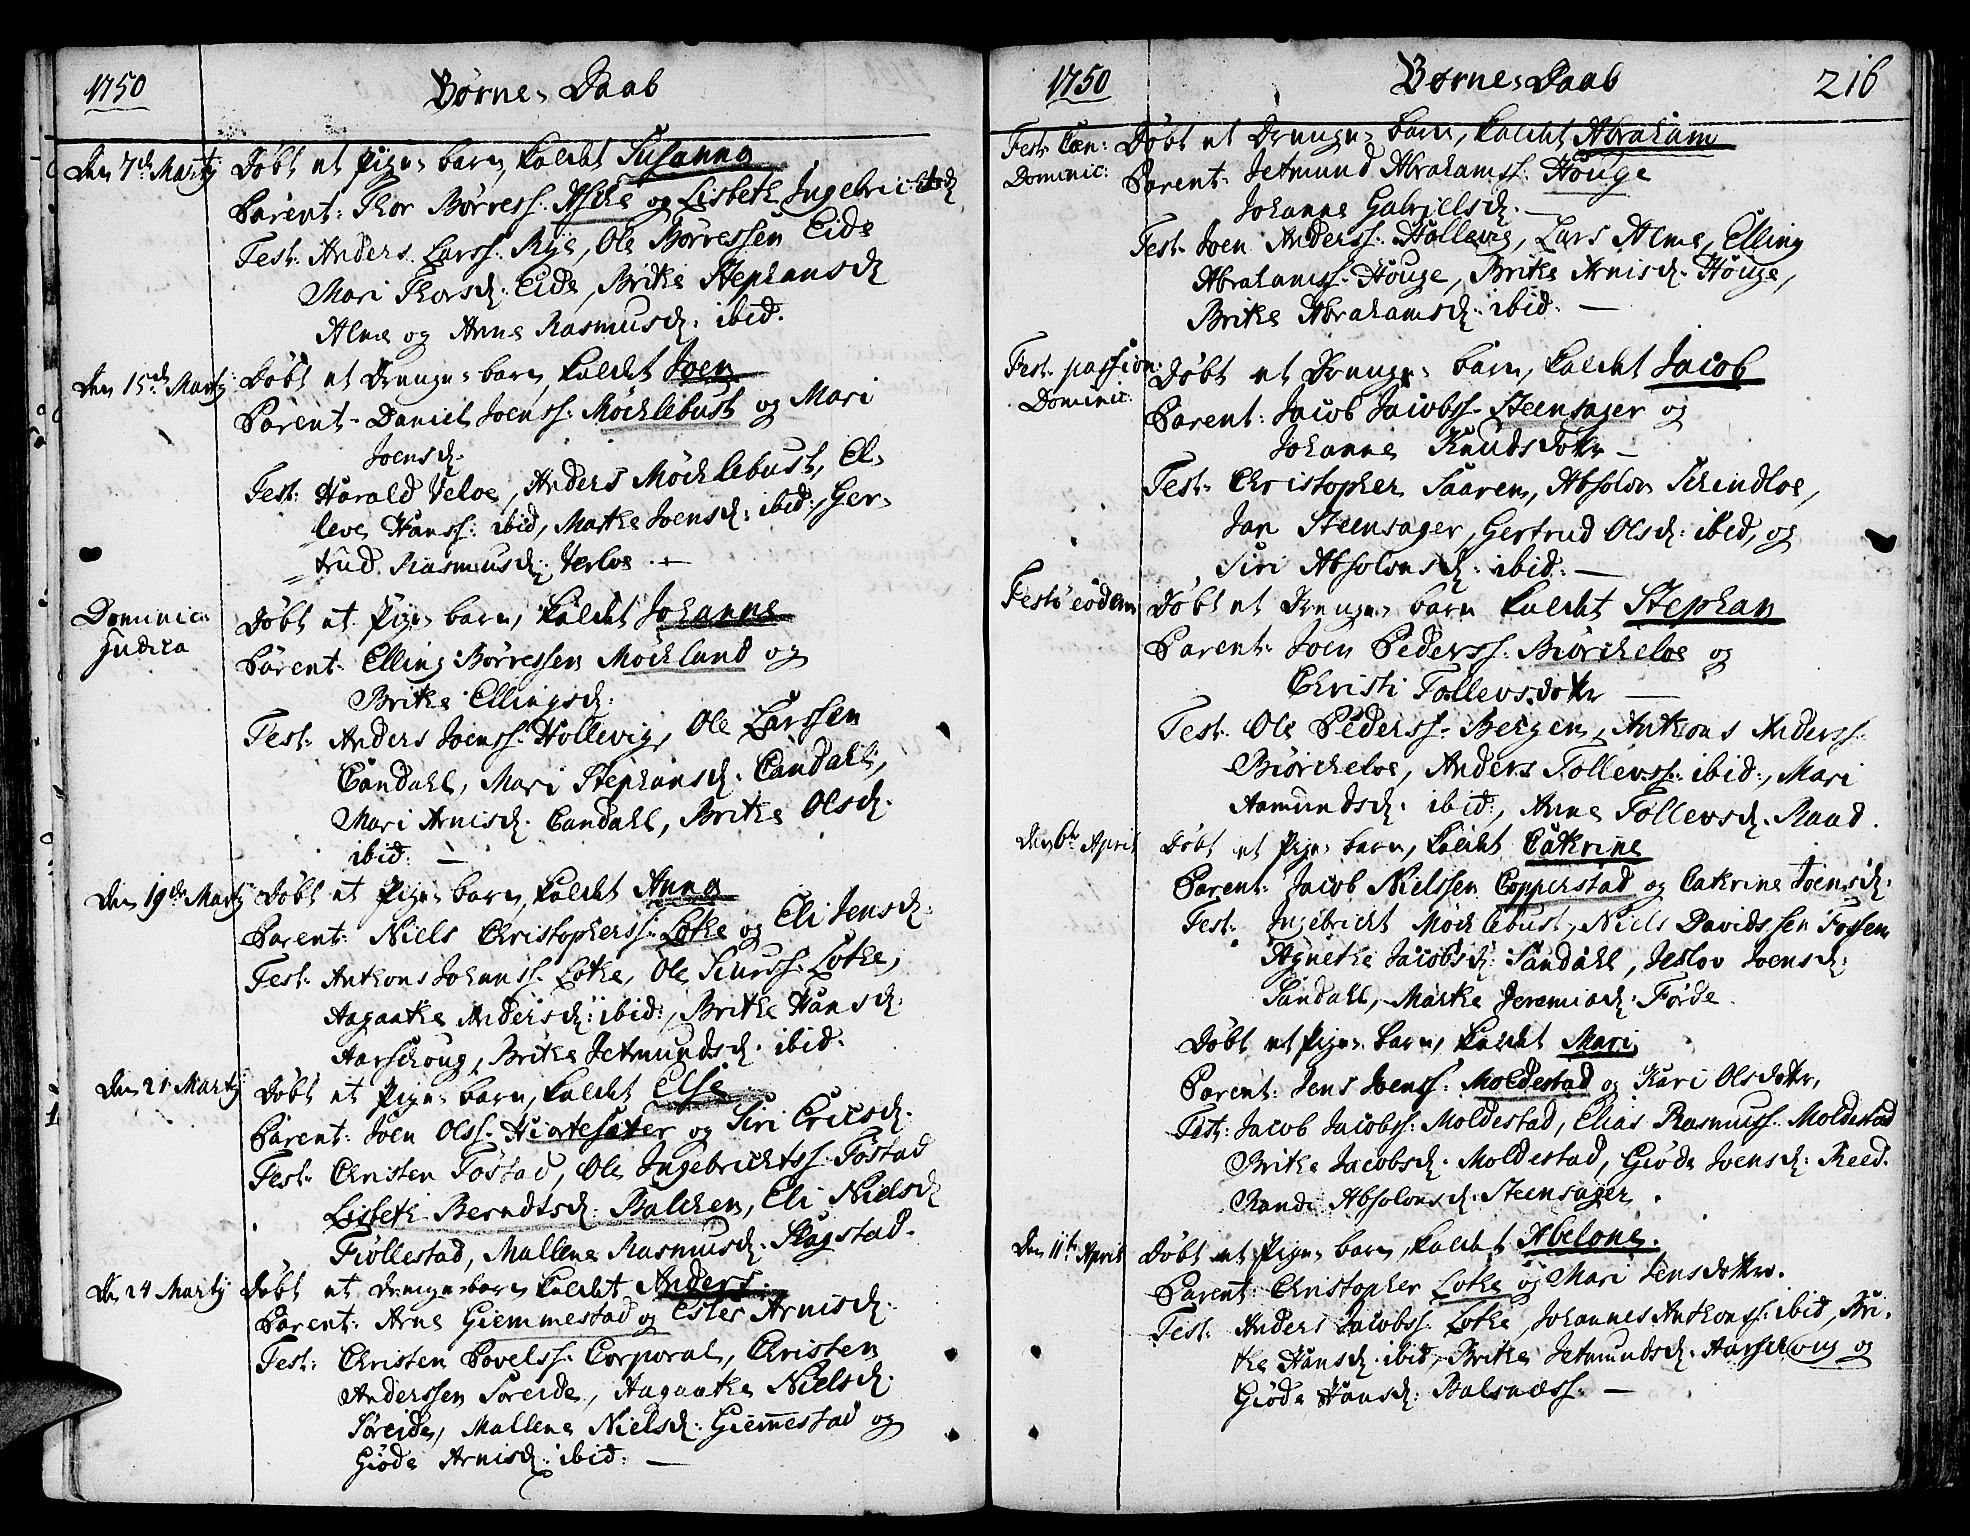 1750
Børne-Daab
Den 7de Martij
Døbt et Pige-barn, kaldet Susanna
Parent: Thor Børress. Aske og Lisbeth Ingebrictsd
Test: Anders Larss. Rye, Ole Børressen Eide
Mari Thorsd: Eide, Brithe Stephansd
Alme og Anne Rasmusd: ibid.
Den 15de Martij
Døbt et Drenge-barn, kaldet Joen
Parent- Daniel Joenss: Möcklebust og Mari
Joensd.
Test: Harald Veloe, Anders Möcklebust, El-
leve Hanss: ibid, Marthe Joensd: ibid:, Ger-
trud Rasmusd: Verloe.
Dominica
Judica
Døbt et Pige-barn, kaldet Johanne
Parent: Elling Børressen Möckland og
Brithe Ellingsd:
Test: Anders Joenss. Hollevig, Ole Larssen
Candahl, Mari Stephansd. Candahl,
Mari Arnisd. Candahl, Brithe Olsd.
ibid:
Den 19de Martij
Døbt et Pige-barn, kaldet Anna
Parent: Niels Christopherss. Lothe og Eli Jensd:
Test: Anthons Johanss. Lothe, Ole Siurss. Lothe,
Aagaathe Andersd: ibid:, Brithe Hansd:
Aarschoug, Brithe Jetmundsd. ibid:
Den 21 Martij
Døbt et Pige-barn, kaldet Else
Parent: Joen Olss. Hiortesæter og Siri Ericsd.
Test: Christen Föstad, Ole Ingebrichtss. Föstad
Lisbeth Berndtsd: Balchen, Eli Nielsd
Fiöllestad, Mallene Rasmusd. Skagstad.
Den 24 Martij
Døbt et Drenge-barn kaldet Anders.
Parent: Arne Giemmestad og Ester Arnisd.
Test: Christen Povelss. Corporal, Christen
Anderssen Søreide, Aagaathe Nielsd.
Søreide, Mallene Nielsd: Giemestad og
Giøde Arnisd: ibid:
1750
Børne-Daab
216
Fest: Cæn:
Dominic:
Døbt et Drenge-barn, kaldet Abraham
Parent: Jetmund Abrahamss. Houge
Johanne Gabrielsd.
Test. Joen Anderss. Hollevig, Lars Alme, Elling
Abrahamss. Houge, Brithe Arnisd. Houge,
Brithe Abrahamsd. ibid.
Fest. passion:
Dominic:
Døbt et Drenge-barn, kaldet Jacob
Parent: Jacob Jacobss. Steensager og
Johanne Knudsdottr
Test: Christopher Saaren, Absolon Skindloe,
Jan Steensager, Gertrud Olsd: ibid, og
Siri Absolonsd. ibid:
Festo eodem
Døbt et Drenge-barn kaldet Stephan
Parent: Joen Pederss. Biörckeloe og
Christi Tollevsdottr
Test. Ole Pederss. Bergen, Anthons Anderss.
Biörckeloe, Anders Tollevss: ibid:, Mari
Aamundsd. ibid:, Anne Tollevsd. Raad.
Den 6te April
Døbt et Pige-barn, kaldet Cathrine
Parent: Jacob Nielssen Copperstad og Cathrine Joensd.
Test: Ingebricht Möcklebust, Niels Davidssen Fossen
Agnethe Jacobsd: Sandahl, Jeslov Joensd:
Sandahl, Marthe Jeremiæd: Førde.
Døbt et Pige-barn, kaldet Mari
Parent: Jens Joenss: Moldestad og Kari Olsdottr,
Test: Jacob Jacobss. Moldestad, Elias Rasmuss. Moldestad
Brithe Jacobsd. Moldestad, Giøde Joensd: Reed.
Randi Absolonsd. Steensager.
Den 11te April
Døbt et Pige-barn, kaldet Abelone.
Parent: Christopher Lothe og Mari Jensdottr.
Test: Anders Jacobss. Lothe, Johannes Anthonss: ibid, Bri-
the Hansd. ibid, Brithe Jetmundsd. Aarschoug og
Giøde Hansd: Balsnæss.